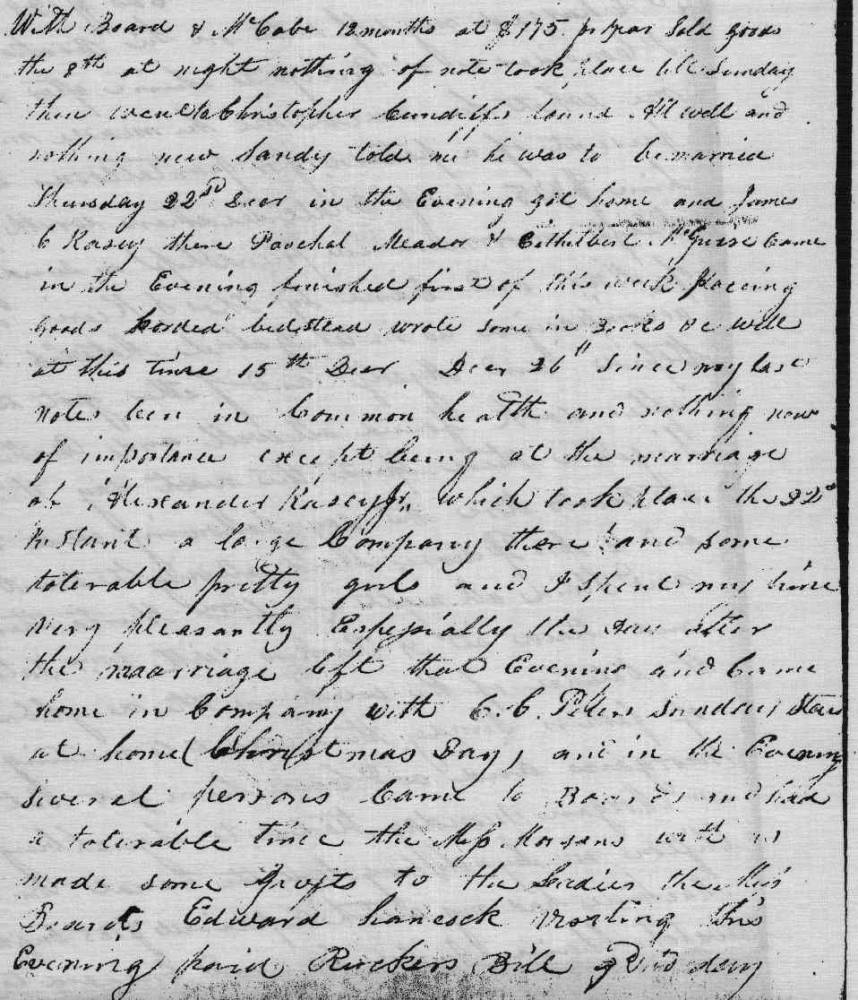 With Board & McCabe 12 months at $175 pr year Sold goods
the 8th at night nothing of note took place till Sunday
then went to Christopher Cundiffs found All well and
nothing new Sandy told me he was to be married
Thursday 22nd Decr in the Evening got home and James
C Kasey there Paschal Meador & Eithelbert McGuire Came
in the Evening finished first of this week placeing
goods Corded bedstead wrote some in Books &c well
at this time 15th Decr Decr 26th Since my last
notes been in Common health and nothing new
of importance except being at the marriage
of Alexander Kasey Jr, which took place the 22nd
Instant a large Company there and some
tolerable pretty girls and I spent my time
very pleasantly Especially the day after
the maarriage left that Evening and Came
home in Company with C. C. Peters Sunday Staid
at home (Christmas Day) and in the Evening
several persons Came to Boards and had
a tolerable time the Miss Morgans with us
made some Gifts to the Ladies the Miss
Boards Edward hancock visiting this
Evening paid Ruckers Bill day